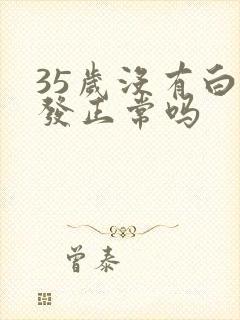 35歲沒有白
發正常嗎
曾泰